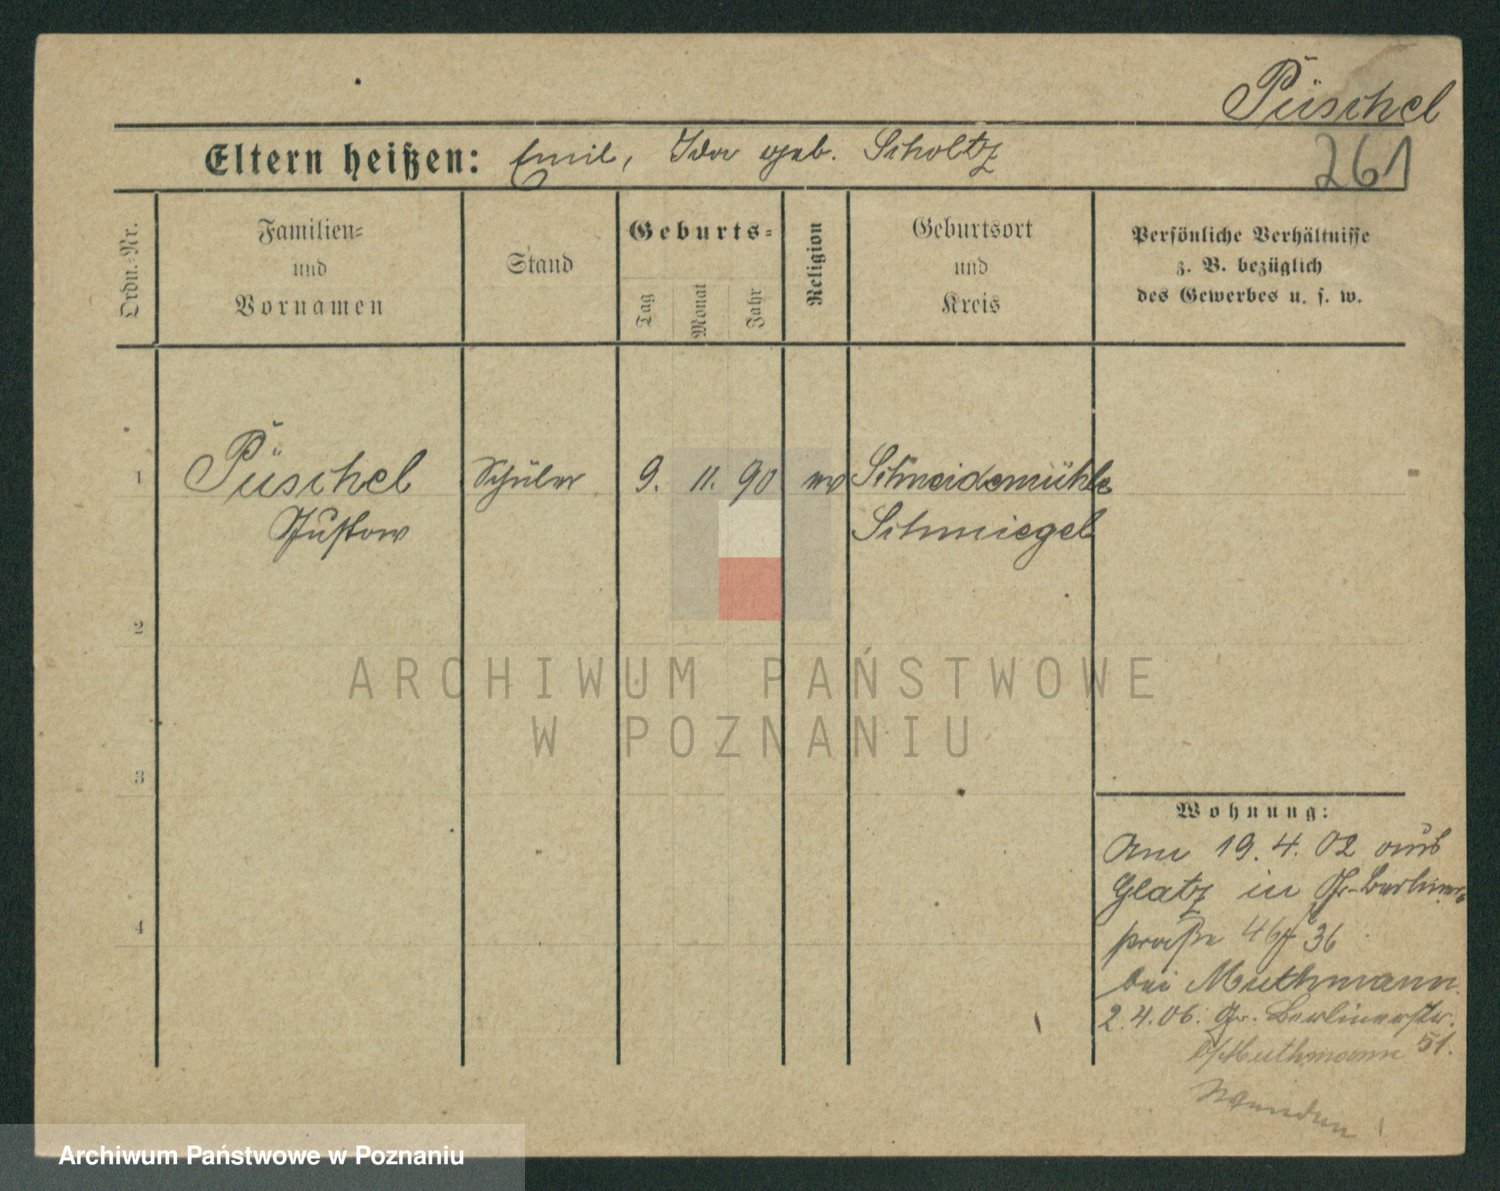 Püschel
261
Eltern heißen: Emil, Ida geb. Scholtz
Ordn.-Nr.
Familien-
und
Vornamen
Stand
Geburts-
Tag
Monat
Jahr
Religion
Geburtsort
und
Kreis
Persönliche Verhältnisse
z. B. bezüglich
des Gewerbes u. s. w.
1 Püschel Schüler 9. 11. 90 ev Schneidemühle
Gustav Schmiegel
2
3
4
ARCHIWUM PAŃSTWOWE
W POZNANIU
Wohnung:
Am 19. 4. 02 aus
Glatz in Gr. Berliner
straße 36
bei Muthmann
2. 4. 06. Gr. Berlinerstr.
b/Muthmann 51.
Wenden!
Archiwum Państwowe w Poznaniu